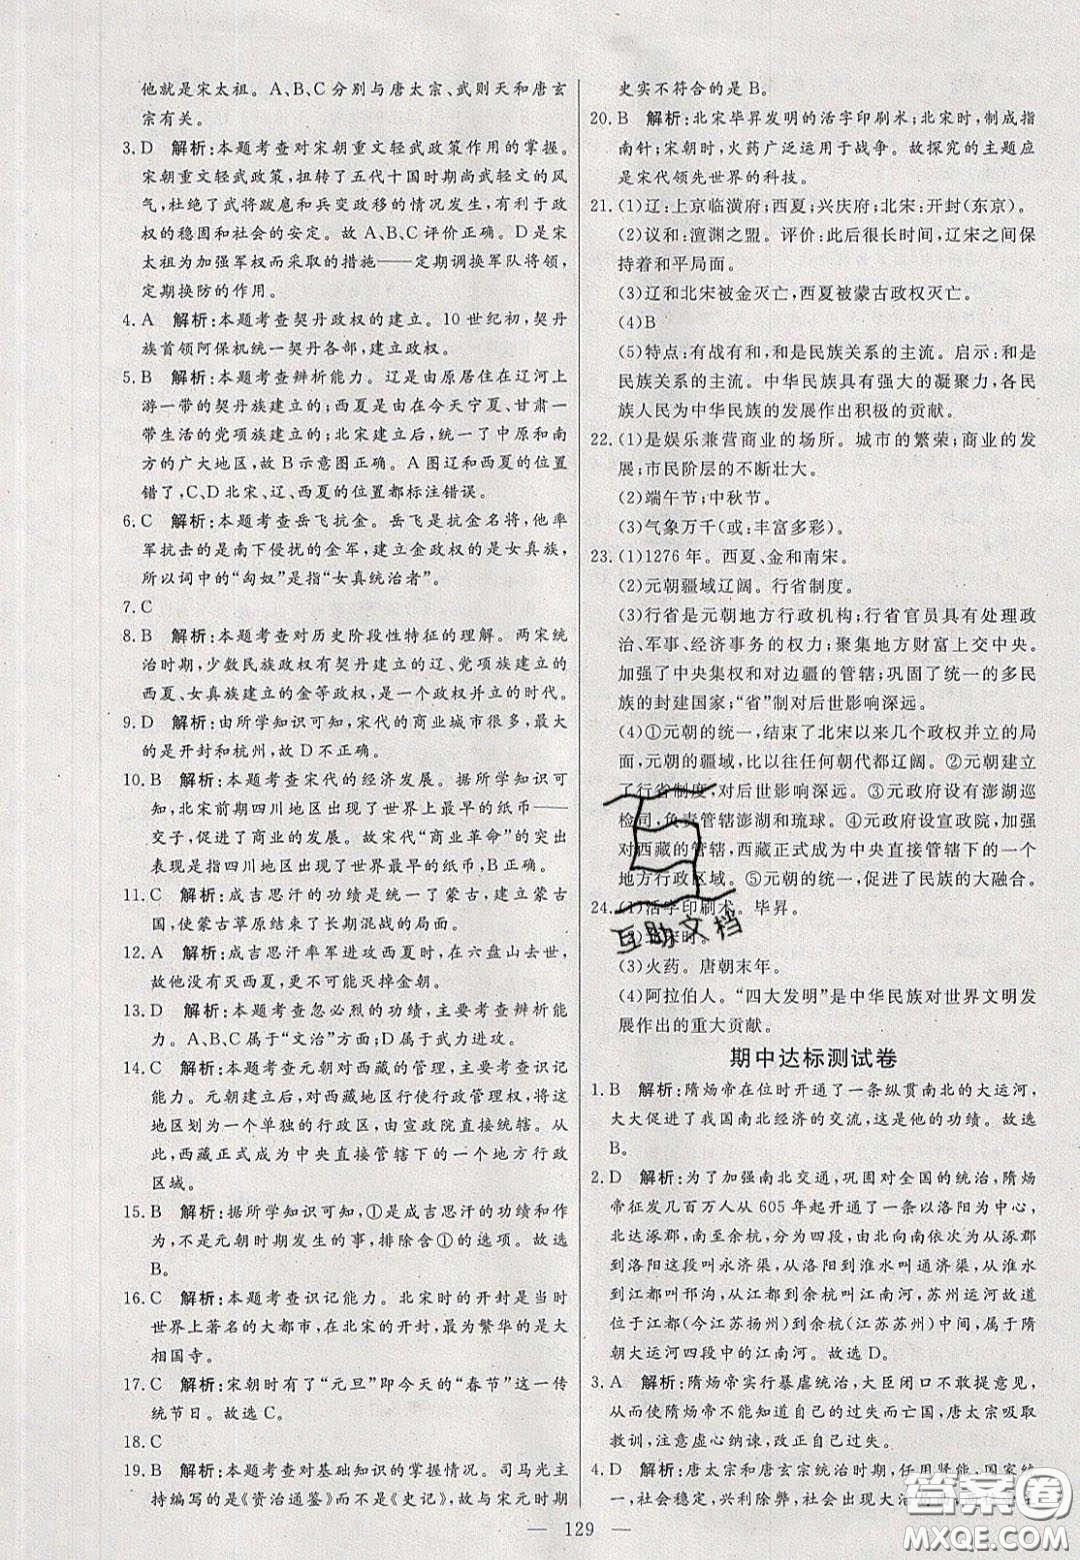 他就是宋太祖。A、B、C分别与唐太宗、武则天和唐玄
宗有关。
3. D 解析:本题考查对宋朝重文轻武政策作用的掌握。
宋朝重文轻武政策,扭转了五代十国时期尚武轻文的风
气,杜绝了武将跋扈和兵变政移的情况发生,有利于政
权的稳固和社会的安定。故A、B、C评价正确。D是宋
太祖为加强军权而采取的措施——定期调换军队将领,
定期换防的作用。
4. A 解析:本题考查契丹政权的建立。10世纪初,契丹
族首领阿保机统一契丹各部,建立政权。
5. B 解析:本题考查辨析能力。辽是由原居住在辽河上
游一带的契丹族建立的;西夏是由在今天宁夏、甘肃一
带生活的党项族建立的;北宋建立后,统一了中原和南
方的广大地区,故B示意图正确。A图辽和西夏的位置
错了,C、D北宋、辽、西夏的位置都标注错误。
6. C 解析:本题考查岳飞抗金。岳飞是抗金名将,他率
军抗击的是南下侵扰的金军,建立金政权的是女真族,
所以词中的“匈奴”是指“女真统治者”。
7. C
8. B 解析:本题考查对历史阶段性特征的理解。两宋统
治时期,少数民族政权有契丹建立的辽、党项族建立的
西夏、女真族建立的金等政权,是一个政权并立的时代。
9. D 解析:由所学知识可知,宋代的商业城市很多,最大
的是开封和杭州,故D不正确。
10. B 解析:本题考查宋代的经济发展。据所学知识可
知,北宋前期四川地区出现了世界上最早的纸币——
交子,促进了商业的发展。故宋代“商业革命”的突出
表现是指四川地区出现了世界最早的纸币,B正确。
11. C 解析:成吉思汗的功绩是统一了蒙古,建立蒙古
国,使蒙古草原结束了长期混战的局面。
12. A 解析:成吉思汗率军进攻西夏时,在六盘山去世,
故他没有灭西夏,更不可能灭掉金朝。
13. D 解析:本题考查忽必烈的功绩,主要考查辨析能
力。A、B、C属于“文治”方面;D属于武力进攻。
14. C 解析:本题考查元朝对西藏的管理,主要考查识记
能力。元朝建立后,对西藏地区行使行政管理权,将这
地区划为一个单独的行政区,由宣政院直接统辖。从
此,西藏正式成为中央直接管辖下的一个地方行政
区域。
15. B 解析:据所学知识可知,①是成吉思汗的功绩和作
为,不是元朝时期发生的事,排除含①的选项。故选
B。
16. C 解析:本题考查识记能力。北宋时的开封是当时
世界上著名的大都市,在北宋的开封,最为繁华的是大
相国寺。
17. C 解析:宋朝时有了“元旦”即今天的“春节”这一传
统节日。故选C。
18. C
19. B 解析:本题考查对基础知识的掌握情况。司马光主
持编写的是《资治通鉴》而不是《史记》,故与宋元时期
史实不符合的是B。
20. B 解析:北宋毕昇发明的活字印刷术;北宋时,制成指
南针;宋朝时,火药广泛运用于战争。故探究的主题应
是宋代领先世界的科技。
21. (1)辽:上京临潢府;西夏;兴庆府;北宋:开封(东京)。
(2)议和:澶渊之盟。评价:此后很长时间,辽宋之间保
持着和平局面。
(3)辽和北宋被金灭亡,西夏被蒙古政权灭亡。
(4)B
(5)特点:有战有和,和是民族关系的主流。启示:和是
民族关系的主流。中华民族具有强大的凝聚力,各民
族人民为中华民族的发展作出积极的贡献。
22. (1)是娱乐兼营商业的场所。城市的繁荣;商业的发
展;市民阶层的不断壮大。
(2)端午节;中秋节。
(3)气象万千(或:丰富多彩)。
23. (1)1276年。西夏、金和南宋。
(2)元朝疆域辽阔。行省制度。
(3)行省是元朝地方行政机构;行省官员具有处理政
治、军事、经济事务的权力;聚集地方财富上交中央。
加强了中央集权和对边疆的管辖;巩固了统一的多民
族的封建国家;“省”制对后世影响深远。
(4)①元朝的统一,结束了北宋以来几个政权并立的局
面,元朝的疆域,比以往任何朝代都辽阔。②元朝建立
了行省制度,对后世影响深远。③元政府设有澎湖巡
检司,负责管辖澎湖和琉球。④元政府设宣政院,加强
对西藏的管辖,西藏正式成为中央直接管辖下的一个
地方行政区域。⑤元朝的统一,促进了民族的大融合。
24. (1)活字印刷术。毕昇。
(2)北宋时。
(3)火药。唐朝末年。
(4)阿拉伯人。“四大发明”是中华民族对世界文明发
展作出的重大贡献。
期中达标测试卷
1. B 解析:隋炀帝在位时开通了一条纵贯南北的大运河,
大大促进了我国南北经济的交流,这是他的功绩。故选
B。
2. D 解析:为了加强南北交通,巩固对全国的统治,隋炀
帝征发几百万人从605年起开通了一条以洛阳为中心,
北达涿郡,南至余杭,分为四段,由北向南依次是从涿郡
到洛阳这段叫永济渠,从洛阳到淮水叫通济渠,从淮水
到江都叫邗沟,从江都到余杭叫江南河,结合所学知道
位于江都(今江苏扬州)到余杭(江苏苏州)中间,属于隋
朝大运河四段中的江南河。故选D。
3. A 解析:隋炀帝实行暴虐统治,大臣闭口不敢提意见,
从而使隋炀帝不能知道自己的过失而亡国,唐太宗吸取
教训,注意虚心纳谏,改正自己过失。
4. D 解析:唐太宗和唐玄宗统治时期,任用贤能,国家统
一,社会稳定,兴利除弊,社会出现大治的
— 129 —
互助文档
答案圈
MXQE.COM